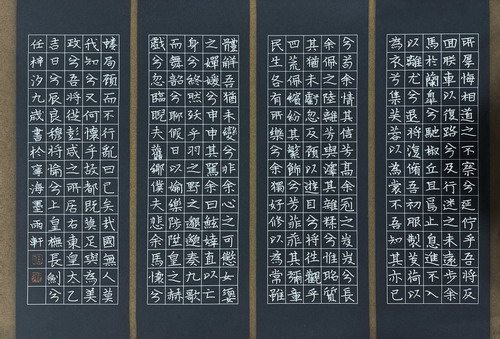 所厚悔相道之不察兮延佇乎吾將反
回朕車以復路兮及行迷之未遠步余
馬於蘭皋兮馳椒丘且焉止息進不入
以離尤兮退將復脩吾初服製芰荷以
為衣兮集芙蓉以為裳不吾知其亦已
兮苟余情其信芳高余冠之岌岌兮長
余佩之陸離芳與澤其雜糅兮惟昭質
其猶未虧忽反顧以遊目兮將往觀乎
四荒佩繽紛其繁飾兮芳菲菲其彌章
民生各有所樂兮余獨好脩以為常雖
體解吾猶未變兮非余心之可懲女嬃
之嬋媛兮申申其詈余曰鮌婞直以亡
身兮終然殀乎羽之野之邈邈奏九歌
而舞韶兮聊假日以媮樂陟陞皇之赫
戲兮忽臨睨夫舊鄉僕夫悲余馬懷兮
蜷局顧而不行亂曰已矣哉國無人莫
我知兮又何懷乎故都既莫足與為美
政兮吾將從彭咸之所居右東皇太乙
吉日兮辰良穆將愉兮上皇撫長劍兮
任梓汐九歲書於寧海墨雨軒